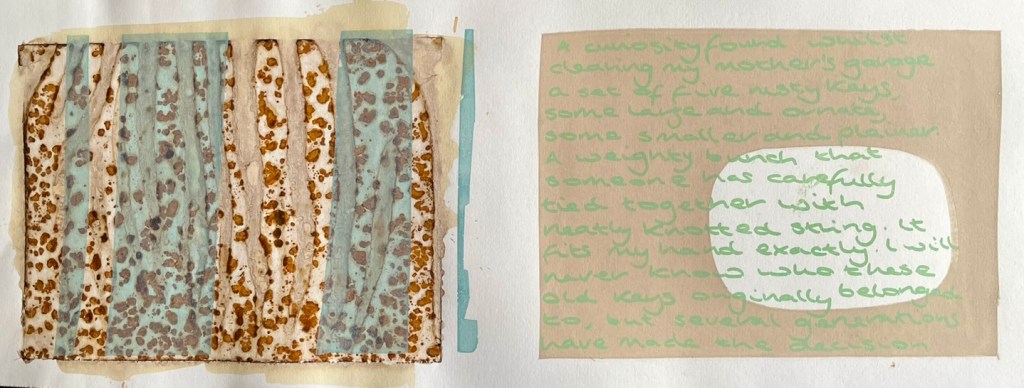 A curiosity found whilst
clearing my mother's garage
a set of five rusty keys,
some large and ornate,
some smaller and plainer.
A weighty bunch that
someone has carefully
tied together with
neatly knotted string. It
fits my hand exactly. I will
never know who these
old keys originally belonged
to, but several generations
have made the decision